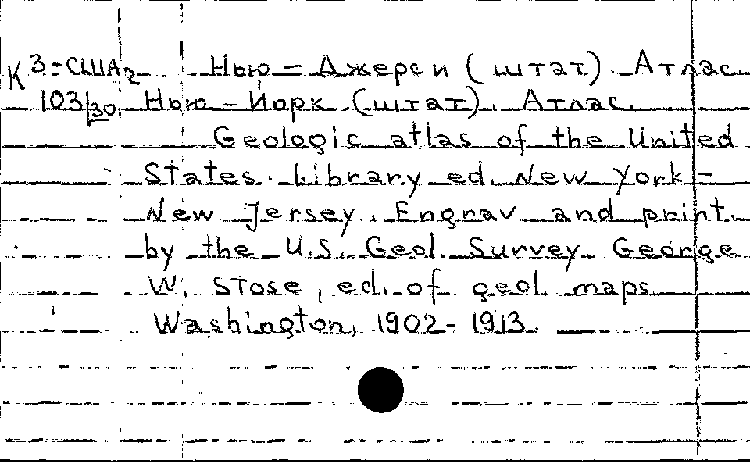 К 3=США2 Нью-Джерси (штат). Атлас
103/30 Нью-Йорк (штат). Атлас.
Geologic atlas of the United
States. Library ed. New York-
New Jersey. Engrav. and print.
by the U.S. Geol. Survey. George
W. Stose, ed. of geol. maps.
Washington, 1902-1913.